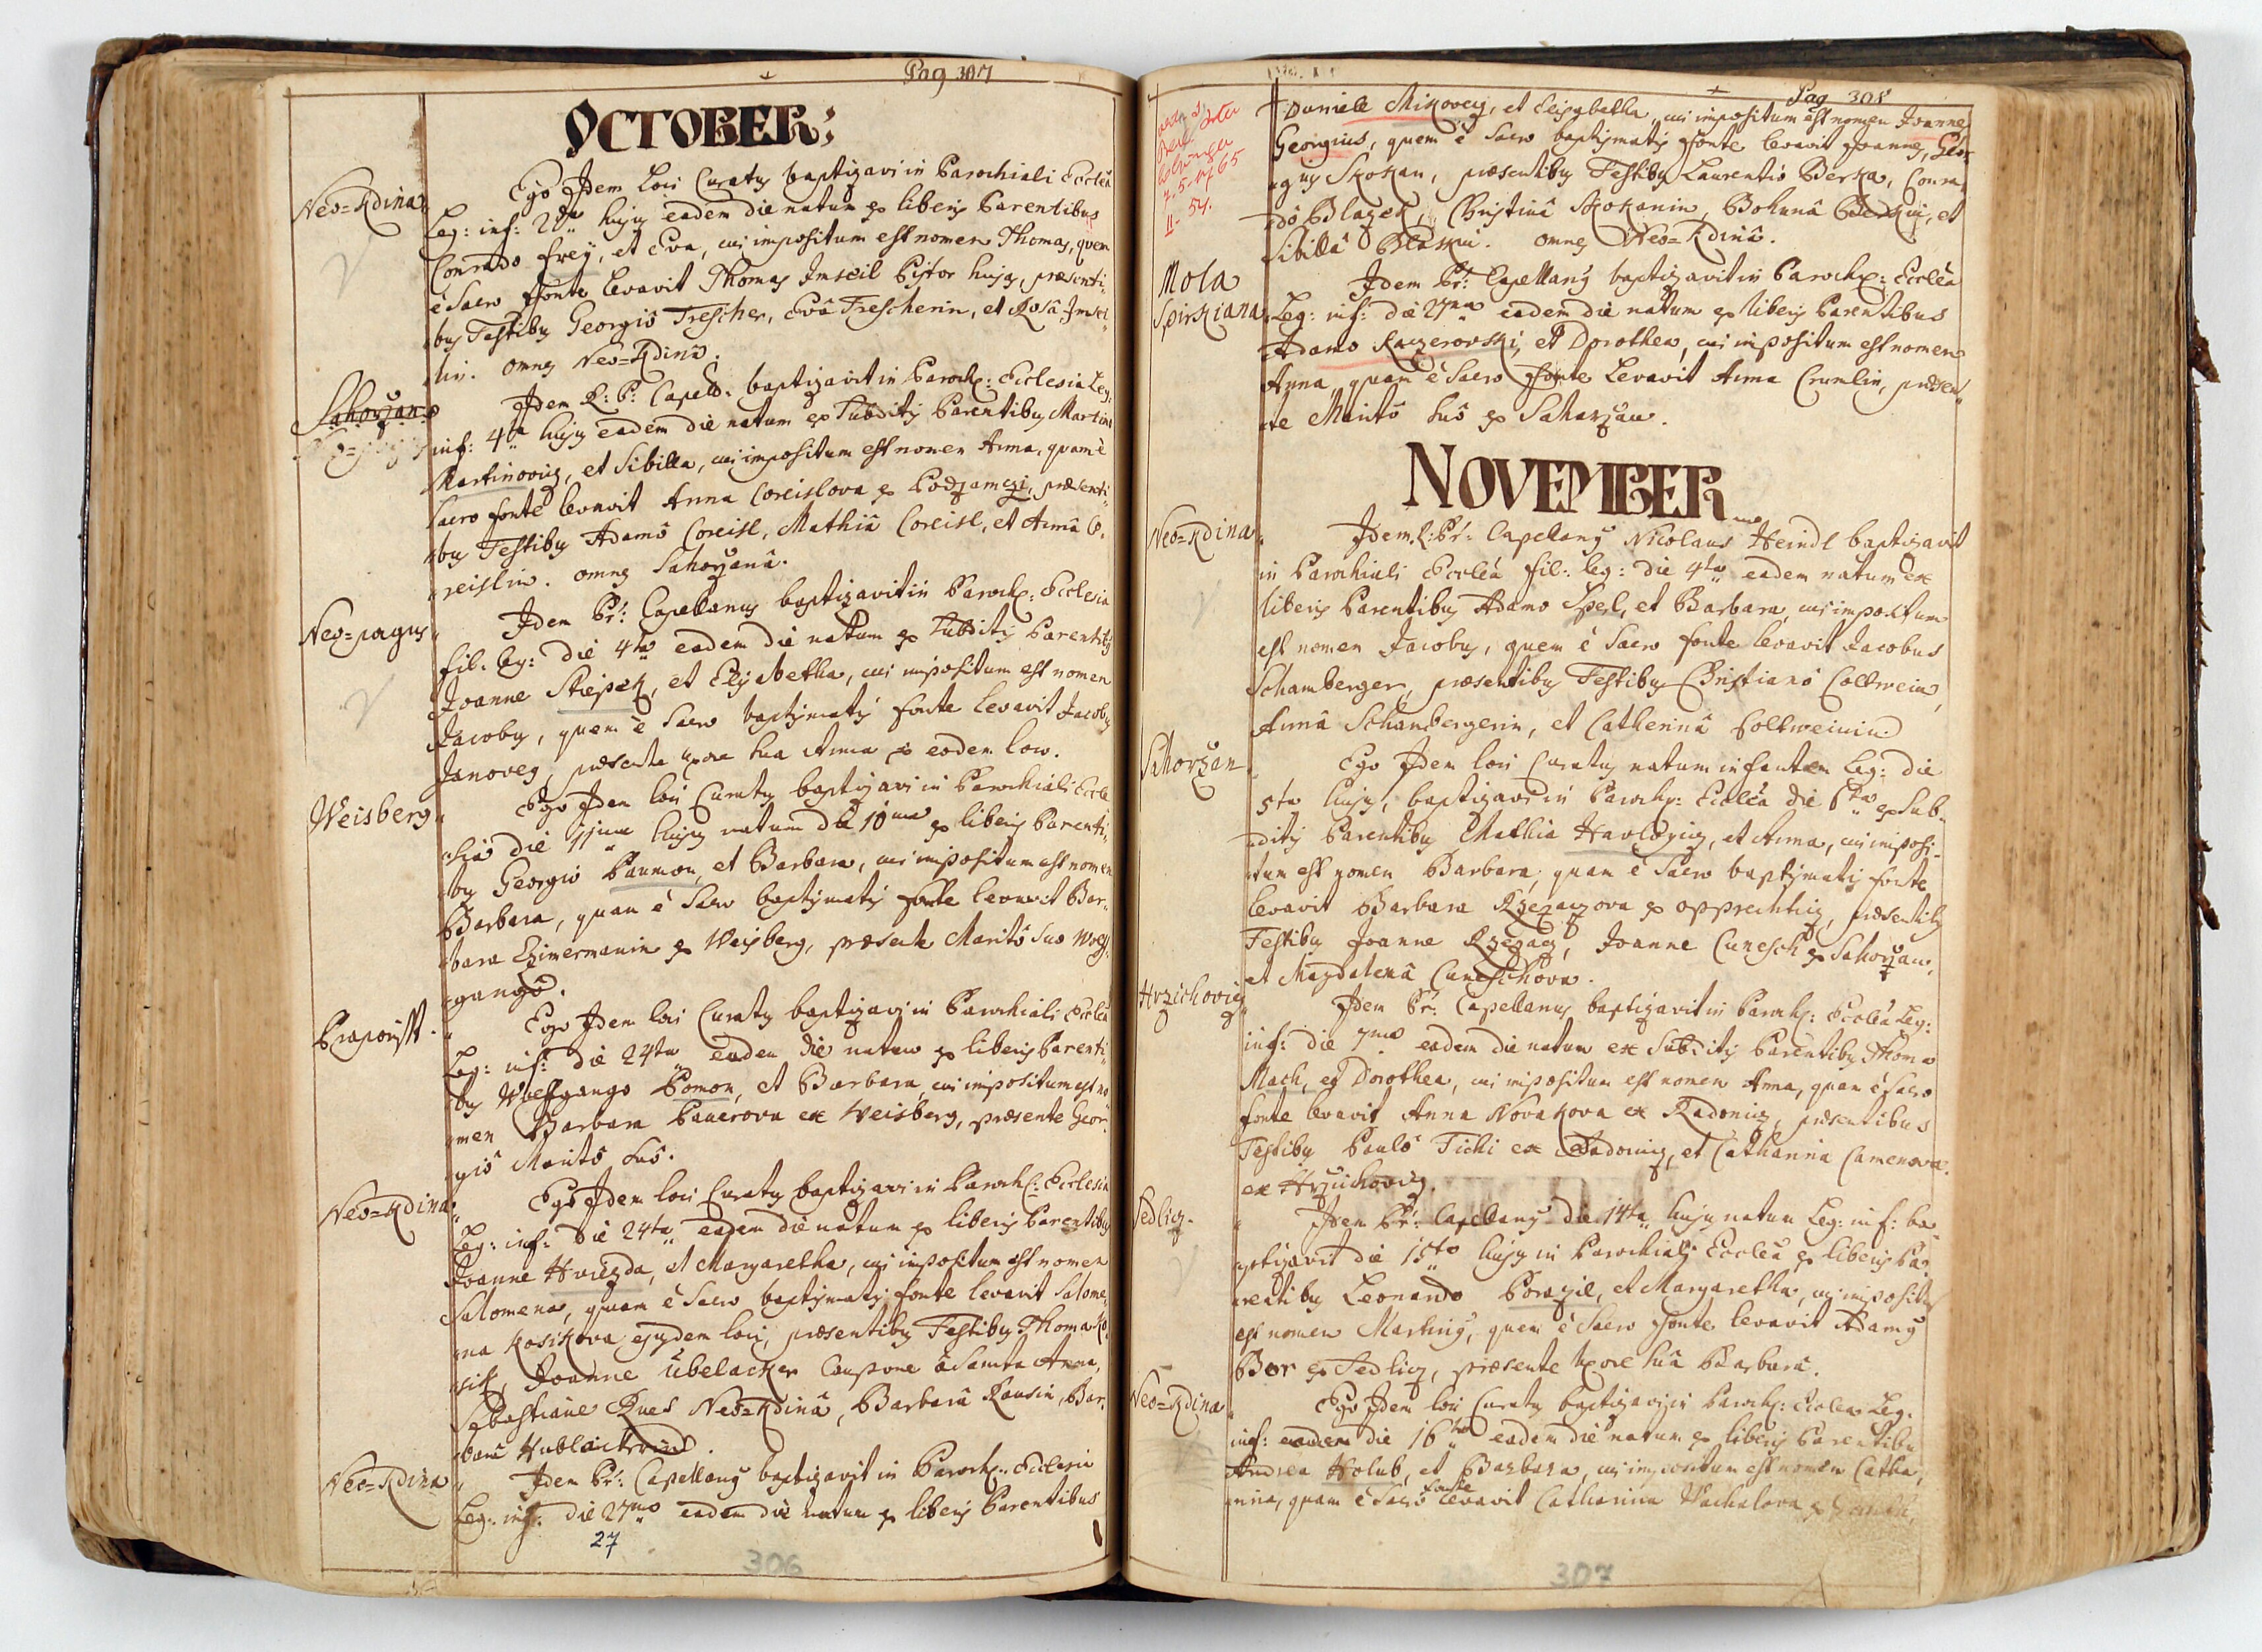 Pag 307
OCTOBER;
Neo=Kdina
Ego Idem Loci Curatus baptizavi in Parochiali Eccleã
Leg: inf: 2da hujus eadem die natum ex liberis Parentibus
Conrado Frey, et Eva, cui impositum est nomen Thomas, quem
è Sacro fonte levavit Thomas Imseil Pistor hujas, præsenti:
bus Testibus Georgiô Trescher, Evâ Trescherin, et Rosâ Imsei
lin. omnes Neo=Kdinâ.
Sahorzan
Idem R: P: Capell: baptizavit in Paroch: Ecclesia Leg:
inf: 4ta hujus eadem die natum ex Subditis Parentibus Martino
Martinovicz, et Sibilla, cui impositum est nomen Anna, quam è
Sacro fonte levavit Anna Coreislova ex Podzamczi, præsenti
bus Testibus Adamô Coreisl, Mathiâ Coreisl, et Annâ Co
reislin. omnes Sahorzanâ.
Neo=pagus
Idem Pr: Capellanus baptizavit in Paroch: Ecclesia
fil: leg: die 4ta eadem die natum ex Subditis Parentibus
Joanne Stiepek, et Elisabetha, cui impositum est nomen
Jacobus, quem è Sacro baptismatis fonte levavit Jacobus
Janovez, præsente uxore sua Anna ex eodem loco.
Weisberg
Ego Idem loci Curatus baptizavi in Parochiali Eccle
siâ die 11ma hujus natum die 10ma ex liberis Parenti:
bus Georgio Paumon, et Barbara, cui impositum est nomen
Barbara, quam è Sacro baptismatis fonte levavit Bar:
bara Czimermanin ex Weisberg, præsente Maritô Suo Wolf
gangô.
Praporisst.
Ego Idem loci Curatus baptizavi in Parochiali Eccleã
Leg: inf: die 24ta eadem die natum ex liberis Parenti:
bus Wolfgango Pomon, et Barbara, cui impositum est no
men Barbara Pauerova ex Weisberg, præsente Geor
giô Maritô suô.
Neo=Kdina
Ego Idem loci Curatus baptizavi in Paroch: Ecclesia
Leg: inf: die 24ta eadem die natum ex liberis Parentibus
Joanne Hviezda, et Margaretha, cui impositum est nomen
Salomena, quam è Sacro baptismatis fonte levavit Salome
na Kosikova ejusdem loci, præsentibus Testibus Thoma Ko
sik, Joanne Übelacker Caupone â Sancta Anna,
Sebastiane Rues Neo=Kdinâ, Barbarâ Rausin, Bar:
barâ
Neo=Kdina
Idem Pr: Capellanus baptizavit in Paroch: Ecclesia
Leg: inf: die 27ma eadem die natum ex liberis Parentibus
27
306
Pag 308
Daniele Mikovecz, et Elisabetha, cui impositum est nomen Joannes
Georgius, quem è Sacro baptismatis fonte levavit Joannes Geor
gius Skokan, præsentibus Testibus Laurentiô Berka, Conra
dô Blazek, Christinâ Skokanin, Bohunâ Berkin, et
Sibillâ Blaskin. omnes Neo=Kdinâ.
Mola
Spirkiana
Idem Pr: Capellanus baptizavit in Paroch: Eccleã
Leg: inf: die 27ma eadem die natum ex liberis Parentibus
Adamo Kaczerovski, et Dorothea, cui impositum est nomen
Anna, quam è Sacro fonte Levavit Anna Crumlin, præsen
te Maritô Suô ex Sahorzan.
NOVEMBER
Neo=Kdina
Idem R: Pr: Capellanus Nicolaus Heindl baptizavit
in Parochiali Eccleâ fil: leg: die 4ta eadem natum ex
liberis Parentibus Adamo Spesl, et Barbara, cui impositum
est nomen Jacobus, quem è Sacro fonte levavit Jacobus
Schamberger, præsentibus Testibus Christianô Coltwein,
Annâ Schambergerin, et Catherinâ Coltweinin.
Sahorzan
Ego Idem loci Curatus natum infantem Leg: die
5ta hujus, baptizavi in Paroch: Eccleâ die 6ta ex Sub
ditis Parentibus Mathia Havlovicz, et Anna, cui imposi
tum est nomen Barbara, quam è Sacro baptismatis fonte
levavit Barbara Rzezaczova ex opprechticz, præsentibus
Testibus Joanne Rzezacz, Joanne Cunesch ex Sahorzan,
et Magdalenâ Cuneschova.
Hrzichovicz
Idem Pr: Capellanus baptizavit in Paroch: Eccleâ Leg:
inf: die 7ma eadem die natum ex Subditis Parentibus Thoma
Mach, et Dorothea, cui impositum est nomen Anna, quam è Sacro
fonte levavit Anna Novakova ex Radonicz, præsentibus
Testibus Paulô Tichi ex Radonicz, et Catharina Camenova
ex Hrzichovicz.
Sedlicz.
Idem Pr: Capellanus die 14ta hujus natum Leg: inf: ba
ptizavit die 15ta hujus in Parochiali Eccleâ ex liberis Pa
rentibus Leonardo Poregil, et Margaretha, cui impositum
est nomen Martinus, quem è Sacro fonte levavit Adamus
Bor ex Sedlicz, præsente uxore suâ Barbarâ.
Neo=Kdina
Ego Idem loci Curatus baptizavi in Paroch: Eccleâ Leg.
inf: die 16ta eadem die natum ex liberis Parentibus
Andrea Holub, et Barbara, cui impositum est nomen Catha
rina, quam è Sacrô fonte levavit Catharina Wachalova ex
307